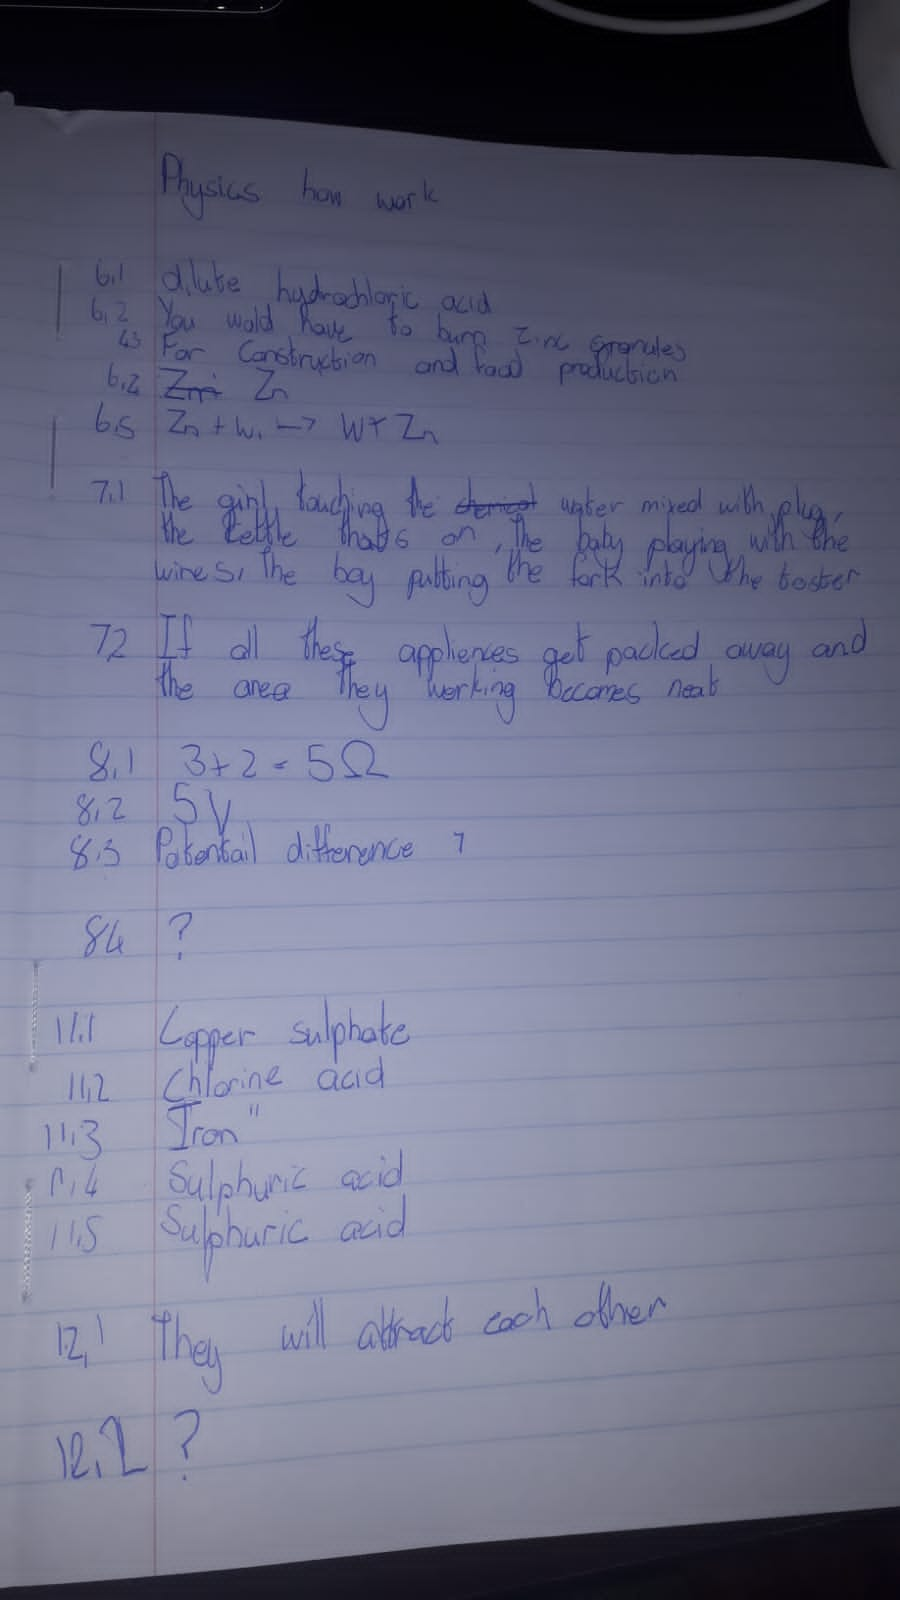 Physics hom work
6.1 dilute hydrochloric acid
6.2 You wold have to burn zinc granules
For construction and food production
6.2 Zn
6.5 Zn + W. -> W+ Zn
7.1 The girl touching the water mixed with plug,
the kettle thats on, the baby playing with the
wires, The boy putting the fork into the toster
72 If all these appliences get packed away and
the area they working becomes neat
8.1 3+2 = 5Ω
8.2 5V
8.3 Potentail difference ?
84 ?
11.1 Copper sulphate
11.2 Chlorine acid
11.3 Iron "
11.4 Sulphuric acid
11.5 Sulphuric acid
12.1 They will attract each other
12.2 ?